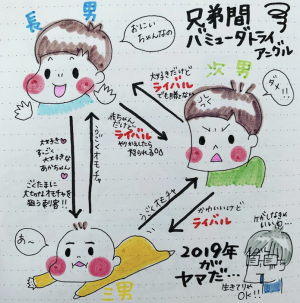 兄弟間
バミューダトライ
アングル
長男
おにい
ちゃんなの
次男
ダメ!!
大好きだけど
ライバル
でも勝てない
赤ちゃん
だけど
ライバル
やりかえしたら
怒られる
大好き
すごく
大好きな
あかちゃん
ごくたまに
大切なオモチャを
狙う刺客!!
うごくオモチャ
うごくオモチャ
かわいいけど
ライバル
あ〜
三男
2019年
が
ヤマだ…
ケガしなきゃいい
生きてりゃ
OK!!